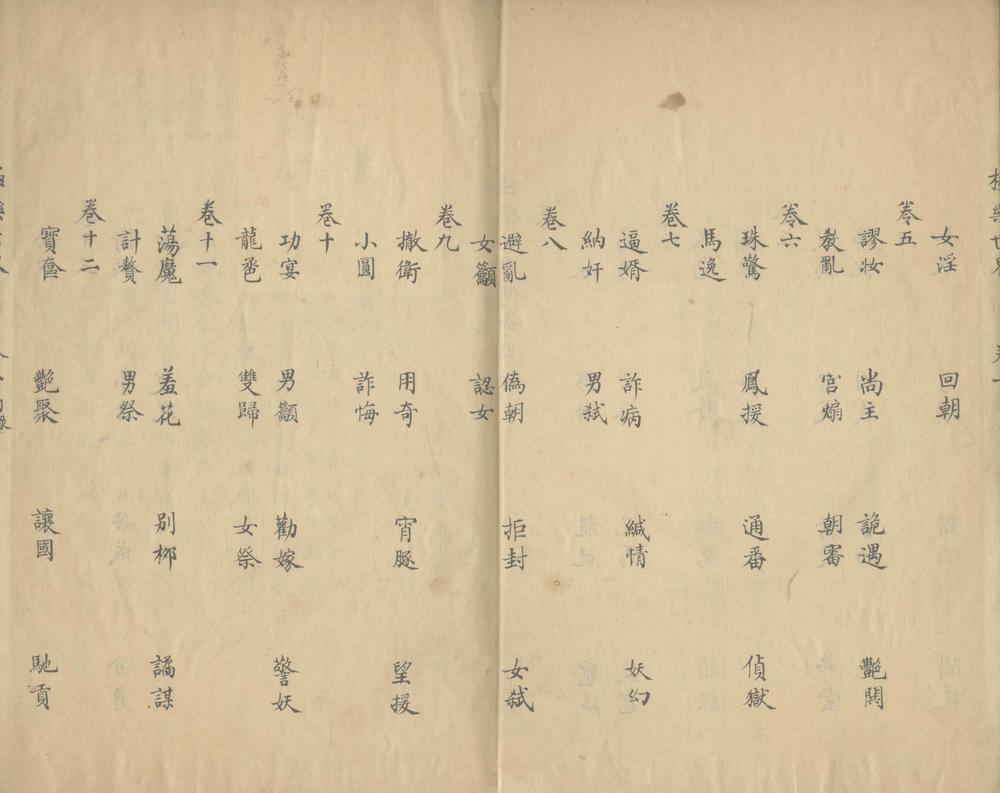 女淫 回朝
卷五
謬妝 尚主 詭遇 艷閧
教亂 宮煽 朝審
卷六
珠驚 鳳援 通番 偵獄
馬逸
卷七
逼婚 詐病 緘情 妖幻
納奸 男弑
卷八
避亂 僞朝 拒封 女弑
女籲 認女
卷九
撤衛 用奇 宵豚 望援
小圓 詐悔
卷十
功宴 男籲 勸嫁 警妖
龍鬯 雙歸 女祭
卷十一
蕩魔 羞花 別柳 譎謀
計贅 男祭
卷十二
寶奩 艷聚 讓國 馳貢